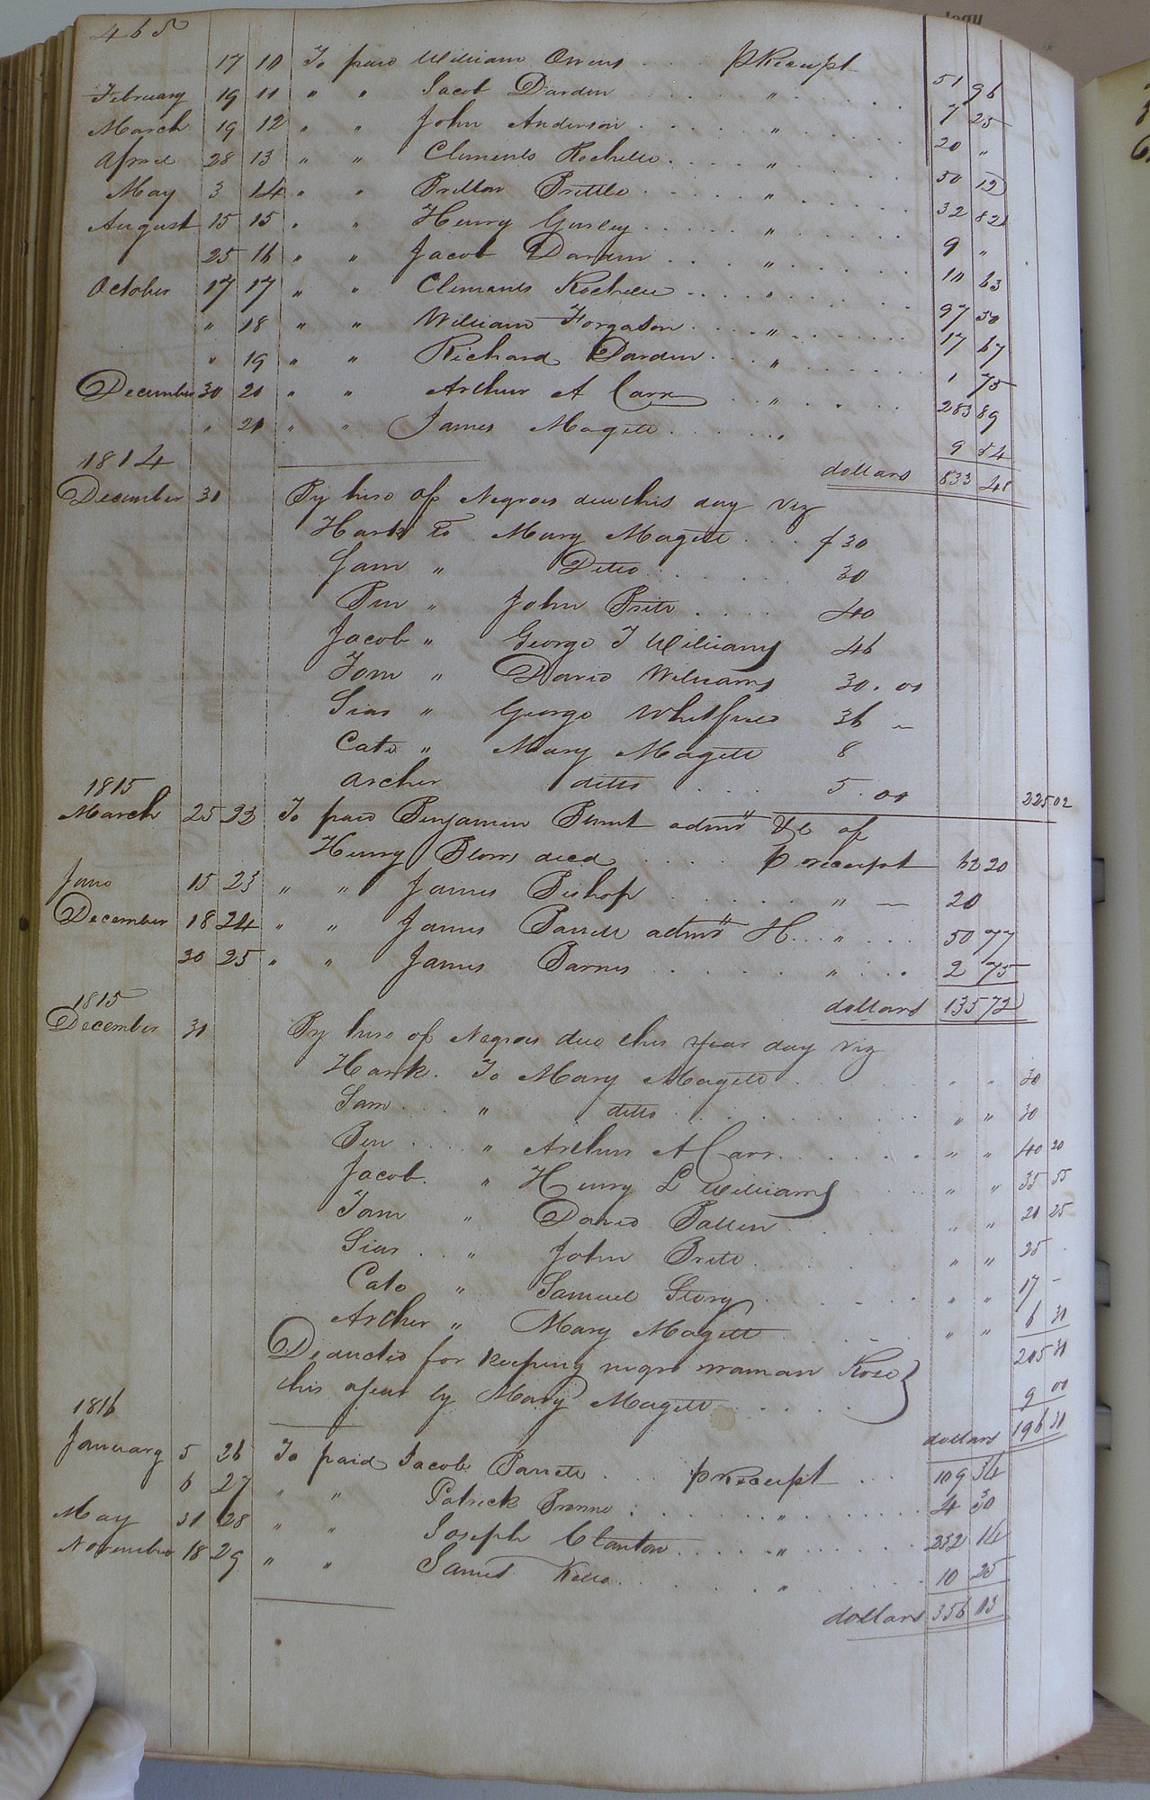 465
17 10 To paid William Owens . . pReceipt 51 96
February 19 11 " " Jacob Darden . . . . " . . . 7 25
March 19 12 " " John Anderson . . . . " . . . 20 "
April 28 13 " " Clements Rochelle . . . . " . . . 50 12
May 3 14 " " Britton Brittle . . . . " . . . 32 82
August 15 15 " " Henry Gurley . . . . " . . . 9 "
25 16 " " Jacob Darden . . . . " . . . 10 63
October 17 17 " " Clements Rochelle . . . . " . . . 97 50
" 18 " " William Forgason . . . . " . . . 17 67
" 19 " " Richard Darden . . . " . . . 1 75
December 30 20 " " Arthur A Carr . . " . . . 283 89
" 21 " " James Magett . . . . " 9 54
dollars 833 48
1814
December 31 By hire of Negroes due this day viz
Hark to Mary Magett . . . $ 30
Sam " Ditto . . . . . 30
Ben " John Brite . . . . 40
Jacob " George T Williams 46
Tom " David Williams 30 . 00
Sias " George Whitfield 36 —
Cato " Mary Magett 8
Archer ditto . . . 5 . 00 225 02
1815
March 25 23 To paid Benjamin Blunt admr &c of
Henry Blow decd . . . . p receipt 62 20
June 15 23 " " James Bishop . . . . . " — 20
December 18 24 " " James Barrett admr H . . " . . . 50 77
30 25 " " James Barnes . . . . . " . . . 2 75
dollars 135 72
1815
December 31 By hire of Negroes due this year day viz
Hark . To Mary Magett . . . " " 30
Sam . . . " ditto . . . . " " 30
Ben . . . " Arthur A Carr . . . . . " " 40 20
Jacob . " Henry L Williams . . " " 35 55
Tom " David Batten . . . " " 21 25
Sias . . " John Brite . . . " " 25 .
Cato " Samuel Story . . . . " " 17 —
Archer " Mary Magett . . . " " 6 31
205 31
Deducted for keeping negro woman Rose }
this year by Mary Magett . . . . . 9 00
dollars 196 31
1816
January 5 26 To paid Jacob Barrett . . pReceipt . . 109 34
6 27 " " Patrick Browne . . . . " . . . 4 30
May 31 28 " " Joseph Clanton . . . . " . . . 232 14
November 18 29 " " Samuel Kello . . . . " . . . 10 25
dollars 356 03